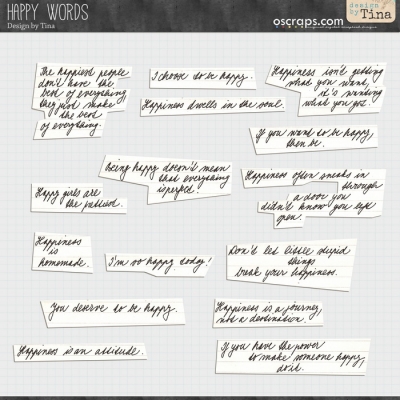 HAPPY WORDS
Design by Tina
oscraps.com
design by Tina
The happiest people
don't have the
best of everything
they just make
the best
of everything.
I choose to be happy.
Happiness isn't getting
what you want,
it's wanting
what you got.
Happiness dwells in the soul.
If you want to be happy,
then be.
Being happy doesn't mean
that everything
is perfect.
Happiness often sneaks in
through
a door you
didn't know you left
open.
Happy girls are
the prettiest.
Happiness
is
homemade.
I'm so happy today!
Don't let little stupid
things
break your happiness.
You deserve to be happy.
Happiness is a journey,
not a destination.
Happiness is an attitude.
If you have the power
to make someone happy,
do it.